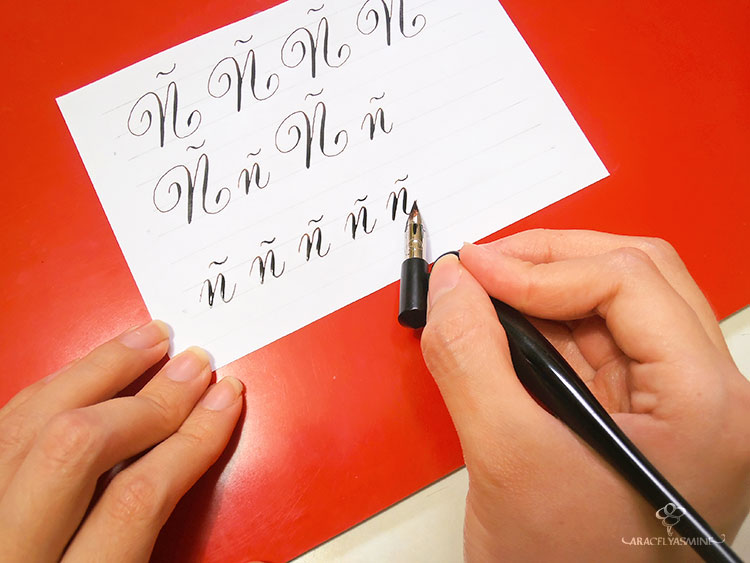 Ñ Ñ Ñ Ñ
Ñ ñ Ñ ñ
ñ ñ ñ ñ ñ
ARACELYASMINE